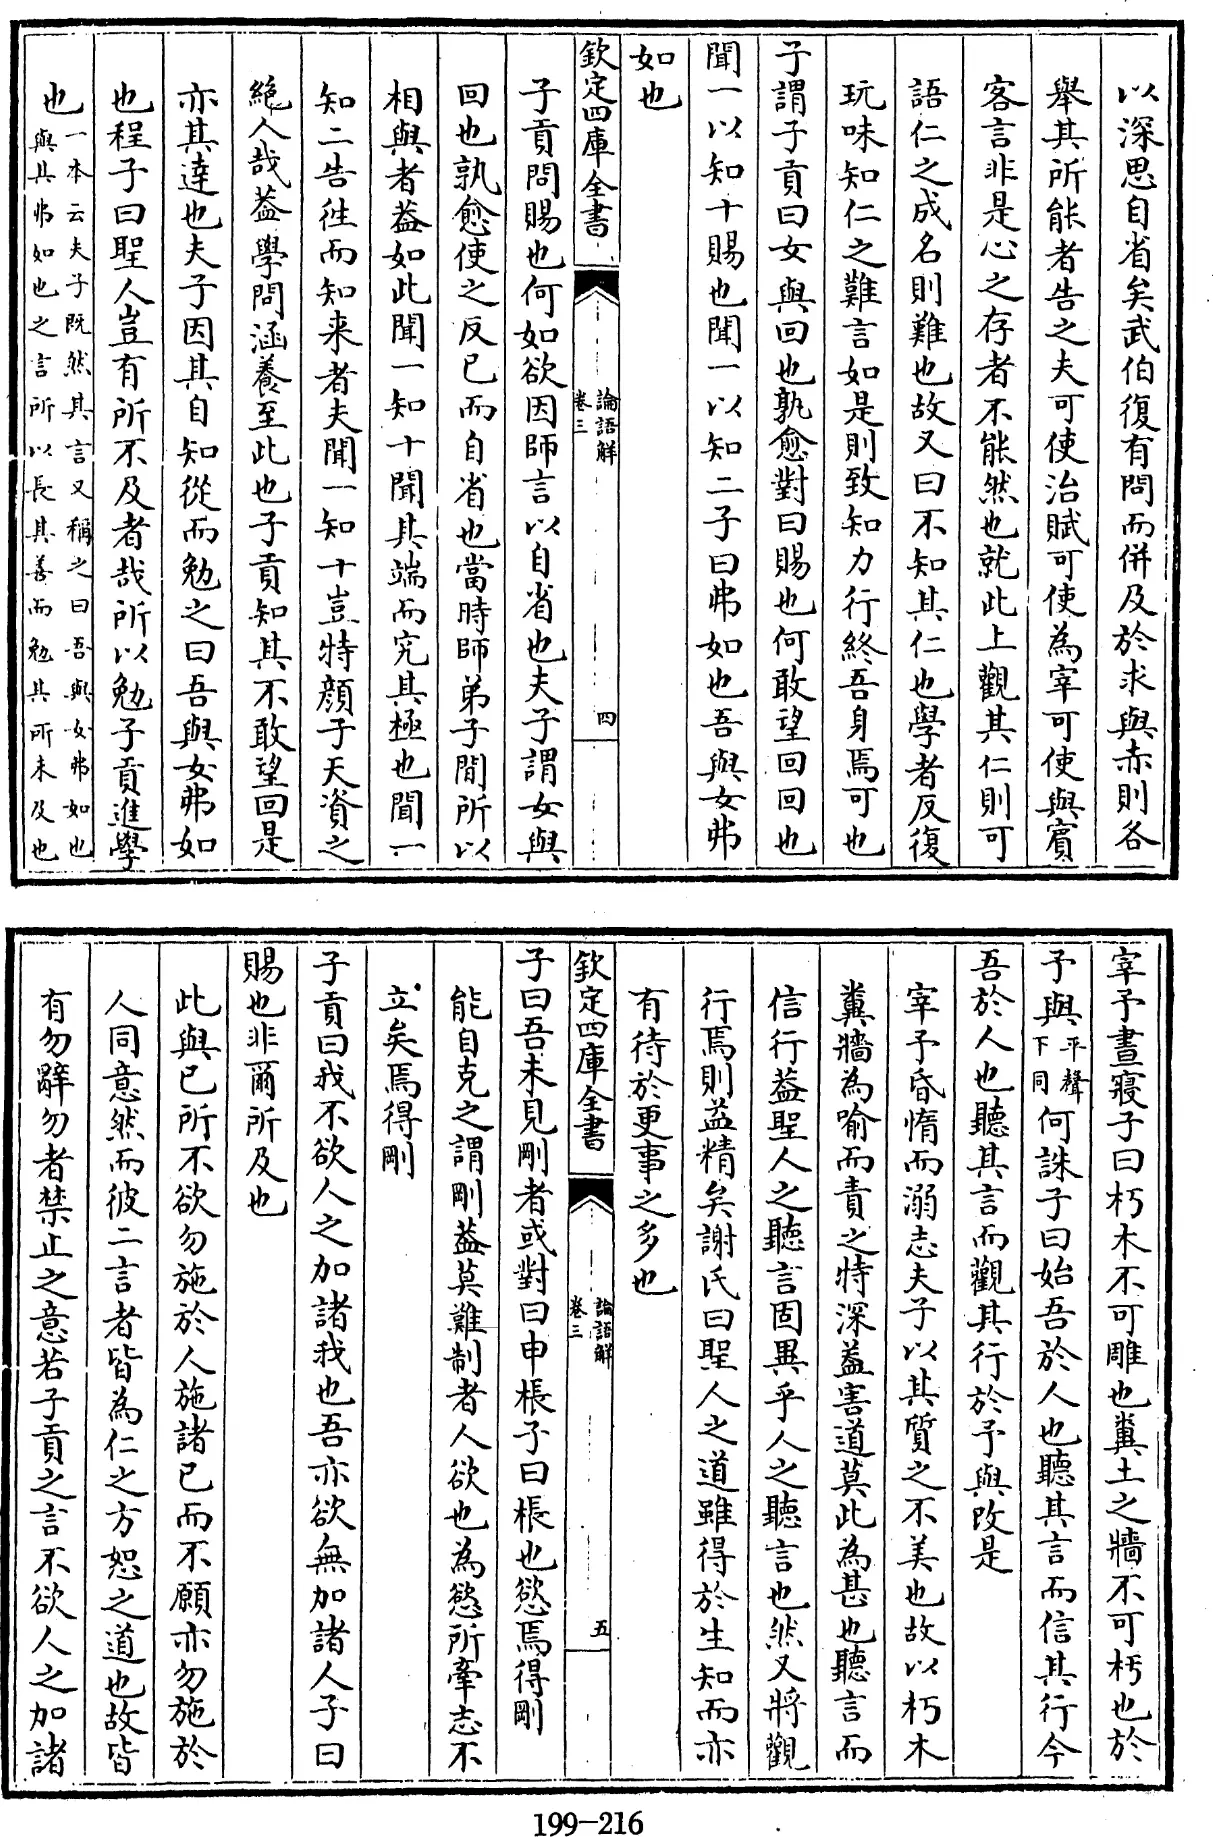 以深思自省矣武伯復有問而併及於求與赤則各
舉其所能者告之夫可使治賦可使為宰可使與賓
客言非是心之存者不能然也就此上觀其仁則可
語仁之成名則難也故又曰不知其仁也學者反復
玩味知仁之難言如是則致知力行終吾身焉可也
子謂子貢曰女與回也孰愈對曰賜也何敢望回回也
聞一以知十賜也聞一以知二子曰弗如也吾與女弗
如也
欽定四庫全書
論語解
卷三
四
子貢問賜也何如欲因師言以自省也夫子謂女與
回也孰愈使之反己而自省也當時師弟子間所以
相與者葢如此聞一知十聞其端而究其極也聞一
知二告徃而知来者夫聞一知十豈特顔子天資之
絶人哉葢學問涵養至此也子貢知其不敢望回是
亦其逹也夫子因其自知從而勉之曰吾與女弗如
也程子曰聖人豈有所不及者哉所以勉子貢進學
也
一本云夫子既然其言又稱之曰吾與女弗如也
與其弗如也之言所以長其善而勉其所未及也
宰予晝寢子曰朽木不可雕也糞土之牆不可杇也於
予與
平聲
下同
何誅子曰始吾於人也聽其言而信其行今
吾於人也聽其言而觀其行於予與改是
宰予昏惰而溺志夫子以其質之不美也故以朽木
糞牆為喻而責之特深葢害道莫此為甚也聽言而
信行葢聖人之聽言固異乎人之聽言也然又將觀
行焉則益精矣謝氏曰聖人之道雖得於生知而亦
有待於更事之多也
欽定四庫全書
論語解
卷三
五
子曰吾未見剛者或對曰申棖子曰棖也慾焉得剛
能自克之謂剛葢莫難制者人欲也為慾所牽志不
立矣焉得剛
子貢曰我不欲人之加諸我也吾亦欲無加諸人子曰
賜也非爾所及也
此與己所不欲勿施於人施諸己而不願亦勿施於
人同意然而彼二言者皆為仁之方恕之道也故皆
有勿辭勿者禁止之意若子貢之言不欲人之加諸
199-216